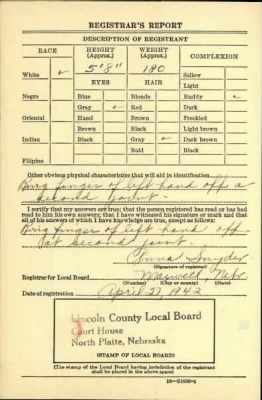 REGISTRAR'S REPORT
DESCRIPTION OF REGISTRANT
RACE HEIGHT (Approx.) WEIGHT (Approx.) COMPLEXION
White ✓ 5'8" 180 Sallow
EYES HAIR Light
Negro Blue Blonde Ruddy ✓
Gray ✓ Red Dark
Oriental Hazel Brown Freckled
Brown Black Light brown
Indian Black Gray ✓ Dark brown
Bald Black
Filipino
Other obvious physical characteristics that will aid in identification
Ring finger of left hand off a
second joint
I certify that my answers are true; that the person registered has read or has had
read to him his own answers; that I have witnessed his signature or mark and that
all of his answers of which I have knowledge are true, except as follows:
Ring finger of left hand off
at second joint.
Anna Snyder
(Signature of registrar)
Registrar for Local Board Maxwell, Nebr
(Number) (City or county) (State)
Date of registration April 27, 1942
Lincoln County Local Board
Court House
North Platte, Nebraska
(STAMP OF LOCAL BOARD)
(The stamp of the Local Board having jurisdiction of the registrant
shall be placed in the above space)